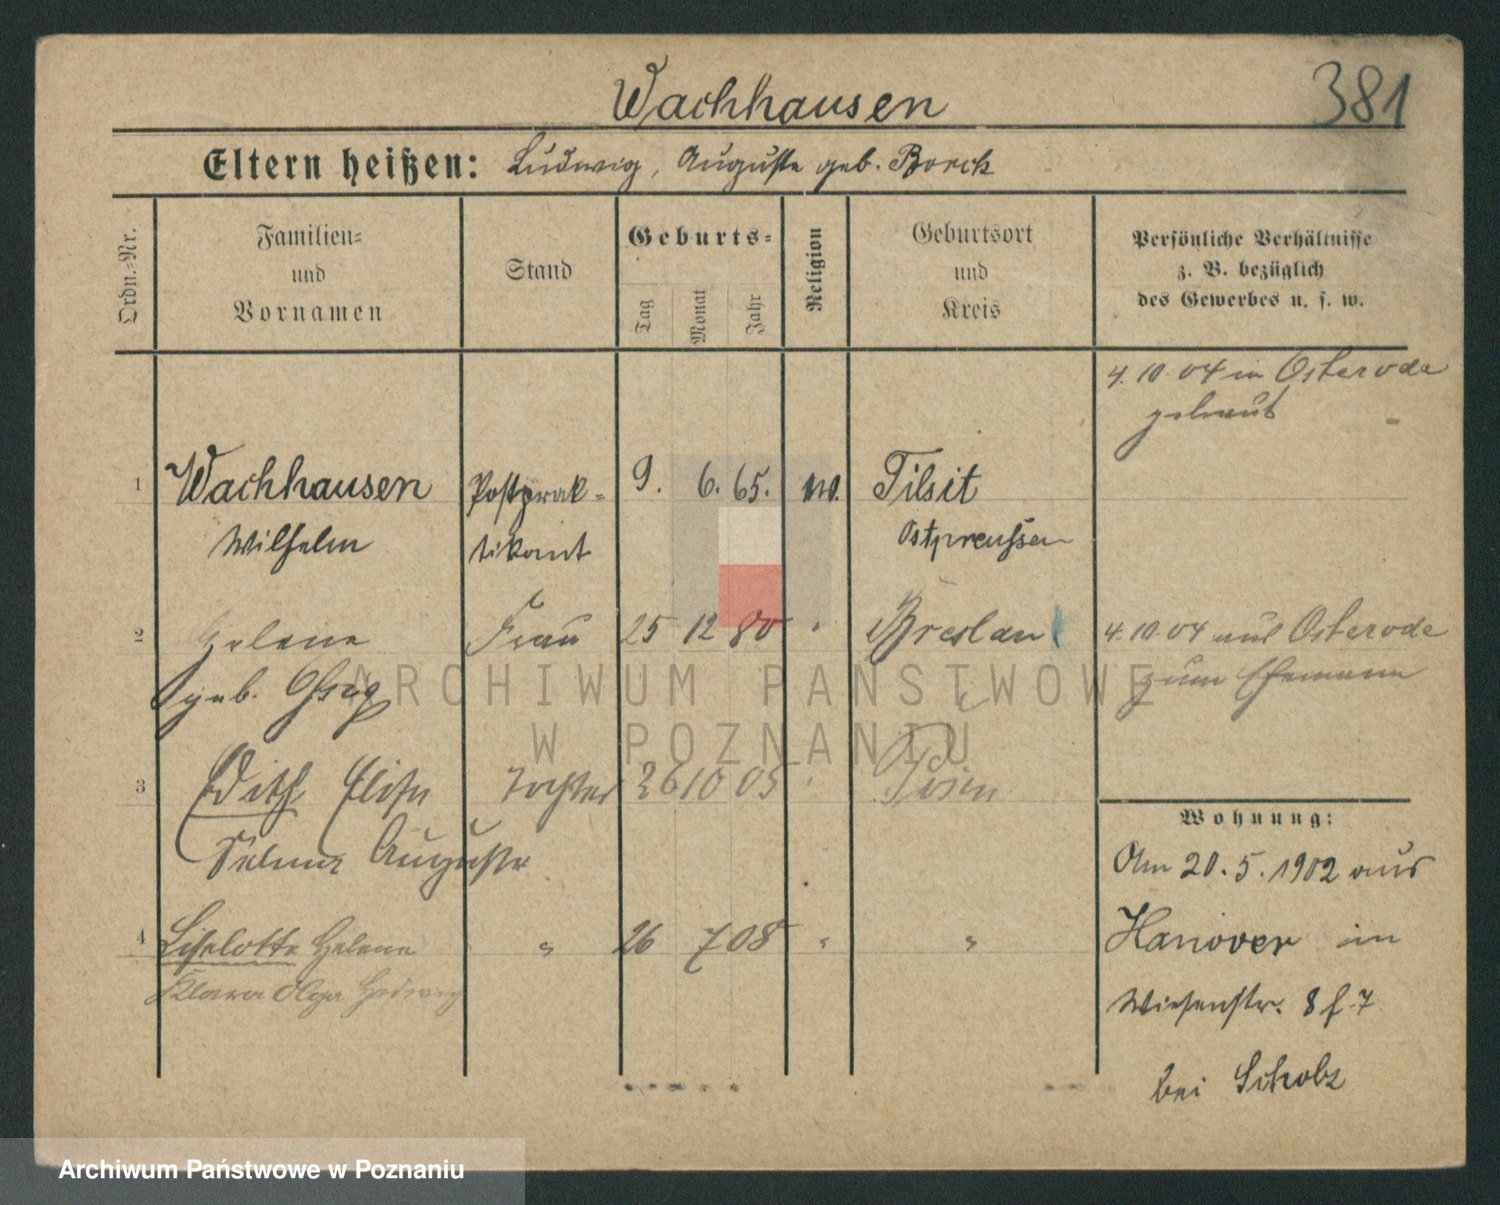 Wachhausen
381
Eltern heißen: Ludwig, Auguste geb. Borck
Ordn.-Nr.
Familien-
und
Vornamen
Stand
Geburts-
Tag
Monat
Jahr
Religion
Geburtsort
und
Kreis
Persönliche Verhältnisse
z. B. bezüglich
des Gewerbes u. s. w.
4. 10. 04 in Osterode
getraut
1 Wachhausen Postprak- 9. 6. 65. Tilsit
Wilhelm tikant Ostpreussen
2 Helene Frau 25 12 80 " Breslau 4. 10. 04 aus Osterode
geb. zum Ehemann
3 Edith Elise Tochter 26 10 05 " Posen
Selma Auguste
Wohnung:
Am 20. 5. 1902 aus
4 Liselotte Helene " 26 7 08 " "
Hanover in
Klara Olga Hedwig
Wiesenstr. 8 f. 7
bei Scholz
ARCHIWUM PAŃSTWOWE
W POZNANIU
Archiwum Państwowe w Poznaniu